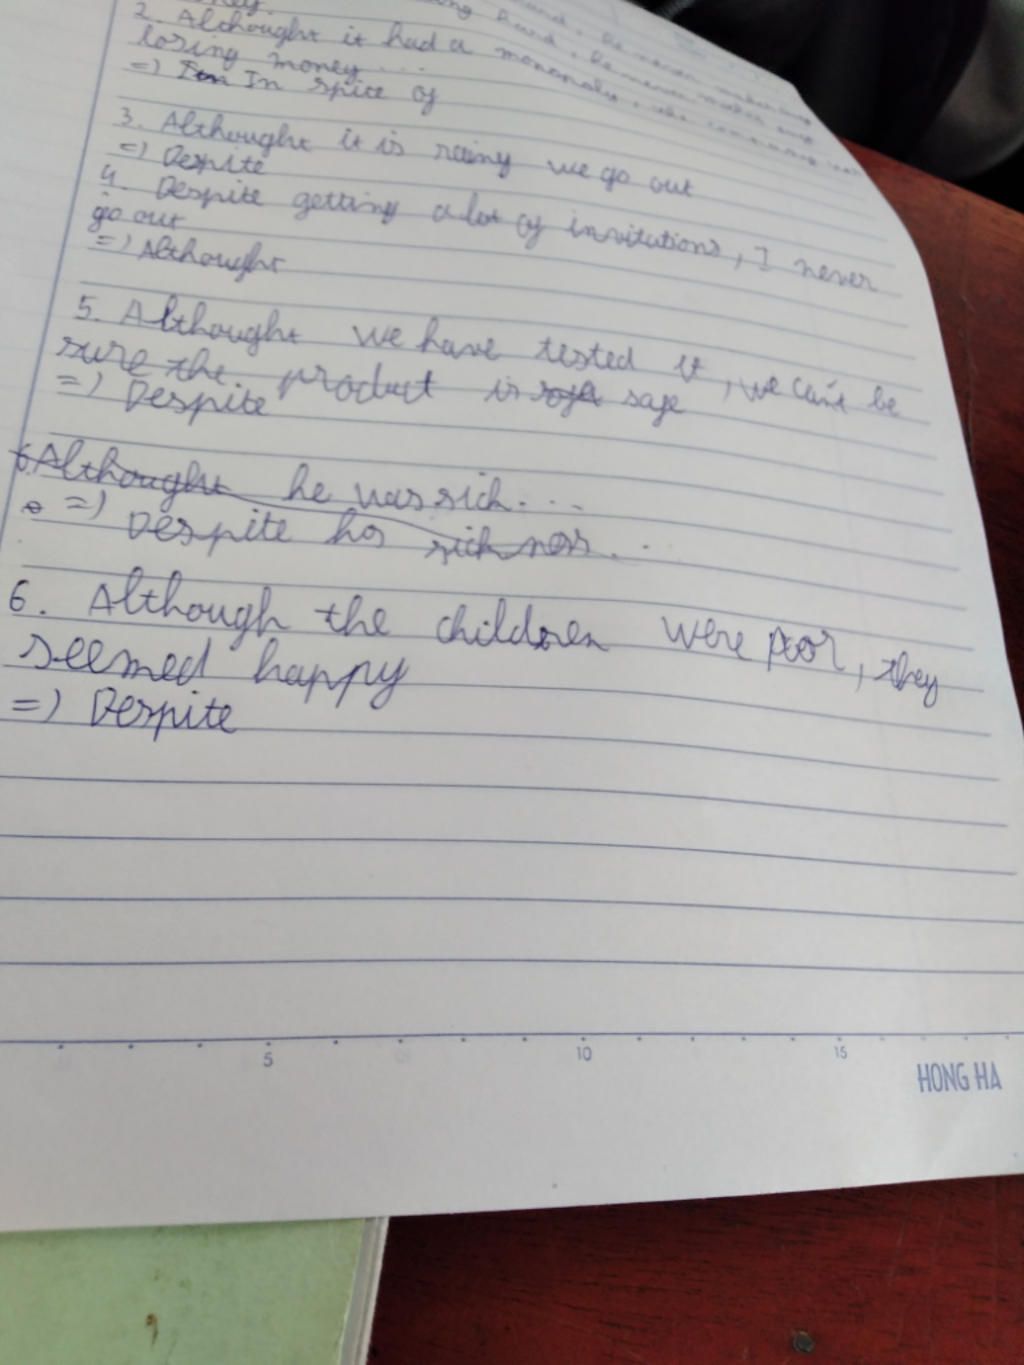 2. Althought it had a monopoly, the company was
losing money...
=) In spite of
3. Althought it is rainy we go out
=) Despite
4. Despite getting a lot of invitations, I never
go out
=) Althought
5. Althought we have tested it, we can't be
sure the product is safe
=) Despite
6. Althought he was sick...
=) Despite his sickness...
6. Although the children were poor, they
seemed happy
=) Despite
5 10 15
HONG HA